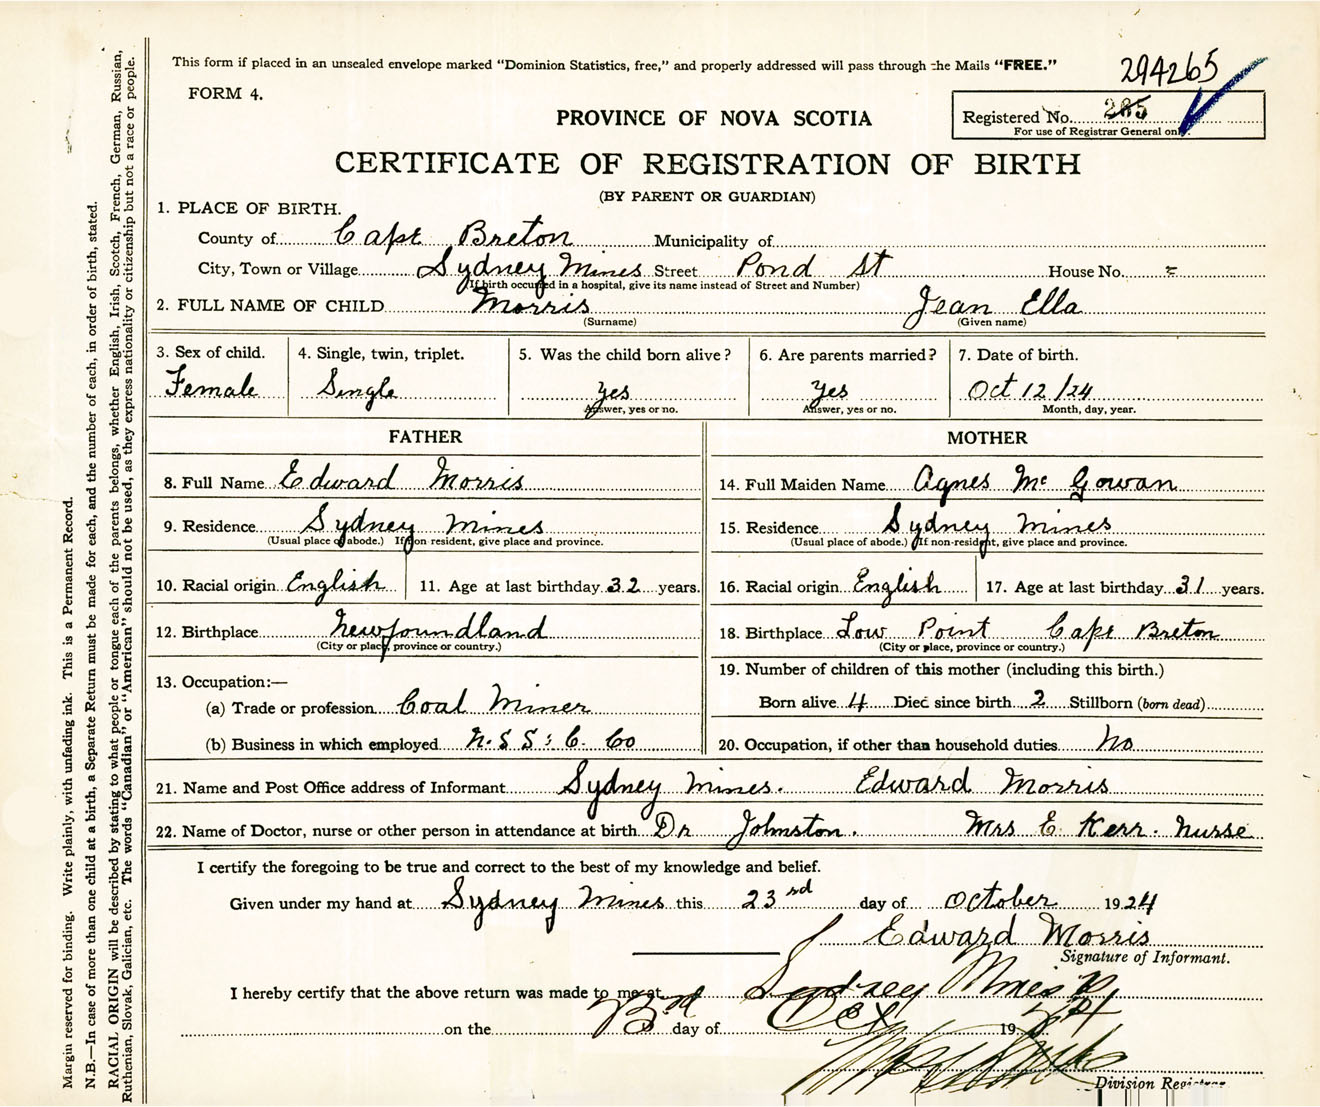 This form if placed in an unsealed envelope marked "Dominion Statistics, free," and properly addressed will pass through the Mails "FREE."
294265
FORM 4.
PROVINCE OF NOVA SCOTIA
Registered No. 265
For use of Registrar General only.
CERTIFICATE OF REGISTRATION OF BIRTH
(BY PARENT OR GUARDIAN)
1. PLACE OF BIRTH.
County of Cape Breton Municipality of
City, Town or Village Sydney Mines Street Pond St House No. =
(If birth occurred in a hospital, give its name instead of Street and Number)
2. FULL NAME OF CHILD Morris Jean Ella
(Surname) (Given name)
3. Sex of child. 4. Single, twin, triplet. 5. Was the child born alive? 6. Are parents married? 7. Date of birth.
Female Single yes yes Oct 12/24
Answer, yes or no. Answer, yes or no. Month, day, year.
FATHER MOTHER
8. Full Name Edward Morris 14. Full Maiden Name Agnes Mc Gowan
9. Residence Sydney Mines 15. Residence Sydney Mines
(Usual place of abode.) If non resident, give place and province. (Usual place of abode.) If non-resident, give place and province.
10. Racial origin English 11. Age at last birthday 32 years. 16. Racial origin English 17. Age at last birthday 31 years.
12. Birthplace Newfoundland 18. Birthplace Low Point Cape Breton
(City or place, province or country.) (City or place, province or country.)
13. Occupation:— 19. Number of children of this mother (including this birth.)
(a) Trade or profession Coal Miner Born alive 4 Died since birth 2 Stillborn (born dead)
(b) Business in which employed N.S S & C. Co 20. Occupation, if other than household duties no
21. Name and Post Office address of Informant Sydney Mines. Edward Morris
22. Name of Doctor, nurse or other person in attendance at birth Dr Johnston. Mrs E Kerr. Nurse
I certify the foregoing to be true and correct to the best of my knowledge and belief.
Given under my hand at Sydney Mines this 23rd day of October 1924
Edward Morris
Signature of Informant.
I hereby certify that the above return was made to me at Sydney Mines
on the day of Oct 1924
Division Registrar
Margin reserved for binding. Write plainly, with unfading ink. This is a Permanent Record.
N.B.—In case of more than one child at a birth, a Separate Return must be made for each, and the number of each, in order of birth, stated.
RACIAL ORIGIN will be described by stating to what people or tongue each of the parents belongs, whether English, Irish, Scotch, French, German, Russian,
Ruthenian, Slovak, Galician, etc. The words "Canadian" or "American" should not be used, as they express nationality or citizenship but not a race or people.